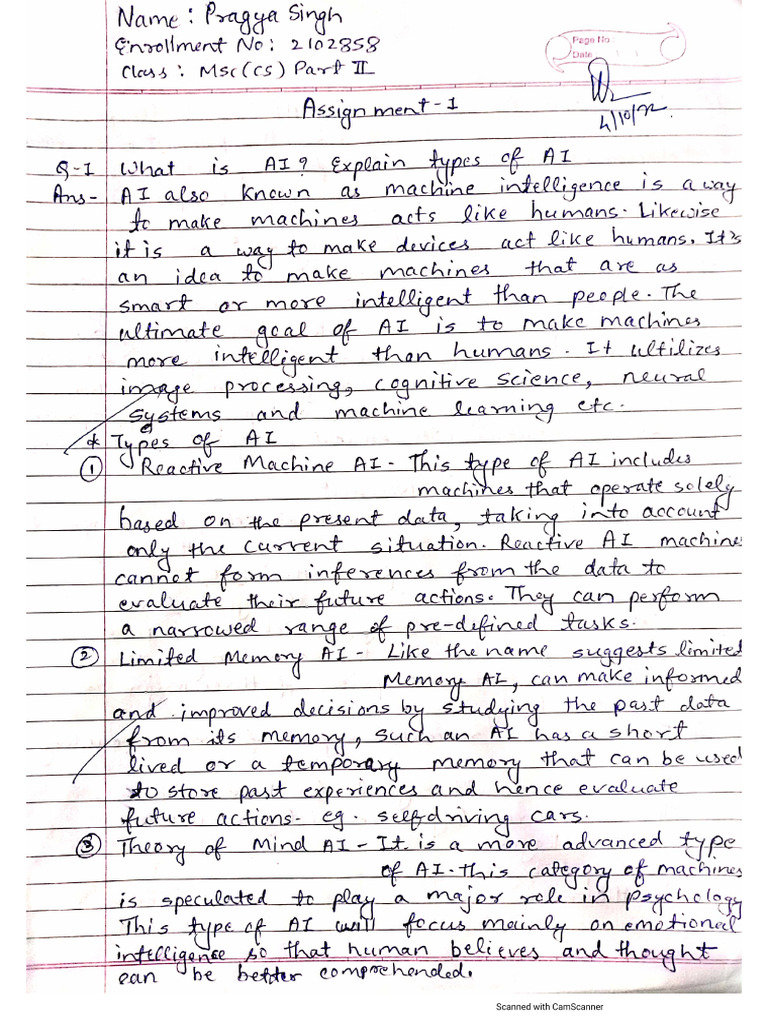 Name: Pragya Singh
Enrollment No: 2102858
Class: Msc(CS) Part II
Page No
Date
4/10/22
Assignment-1
Q-1 What is AI? Explain types of AI
Ans- AI also known as machine intelligence is a way
to make machines acts like humans. Likewise
it is a way to make devices act like humans. It's
an idea to make machines that are as
smart or more intelligent than people. The
ultimate goal of AI is to make machines
more intelligent than humans. It ultilizes
image processing, cognitive science, neural
systems and machine learning etc.
* Types of AI
① Reactive Machine AI - This type of AI includes
machines that operate solely
based on the present data, taking into account
only the current situation. Reactive AI machines
cannot form inferences from the data to
evaluate their future actions. They can perform
a narrowed range of pre-defined tasks.
② Limited Memory AI - Like the name suggests limited
Memory AI, can make informed
and improved decisions by studying the past data
from its memory, such an AI has a short
lived or a temporary memory that can be used
to store past experiences and hence evaluate
future actions. eg. selfdriving cars.
③ Theory of Mind AI - It is a more advanced type
of AI. This category of machines
is speculated to play a major role in psychology
This type of AI will focus mainly on emotional
intelligence so that human believes and thought
can be better comprehended.
Scanned with CamScanner